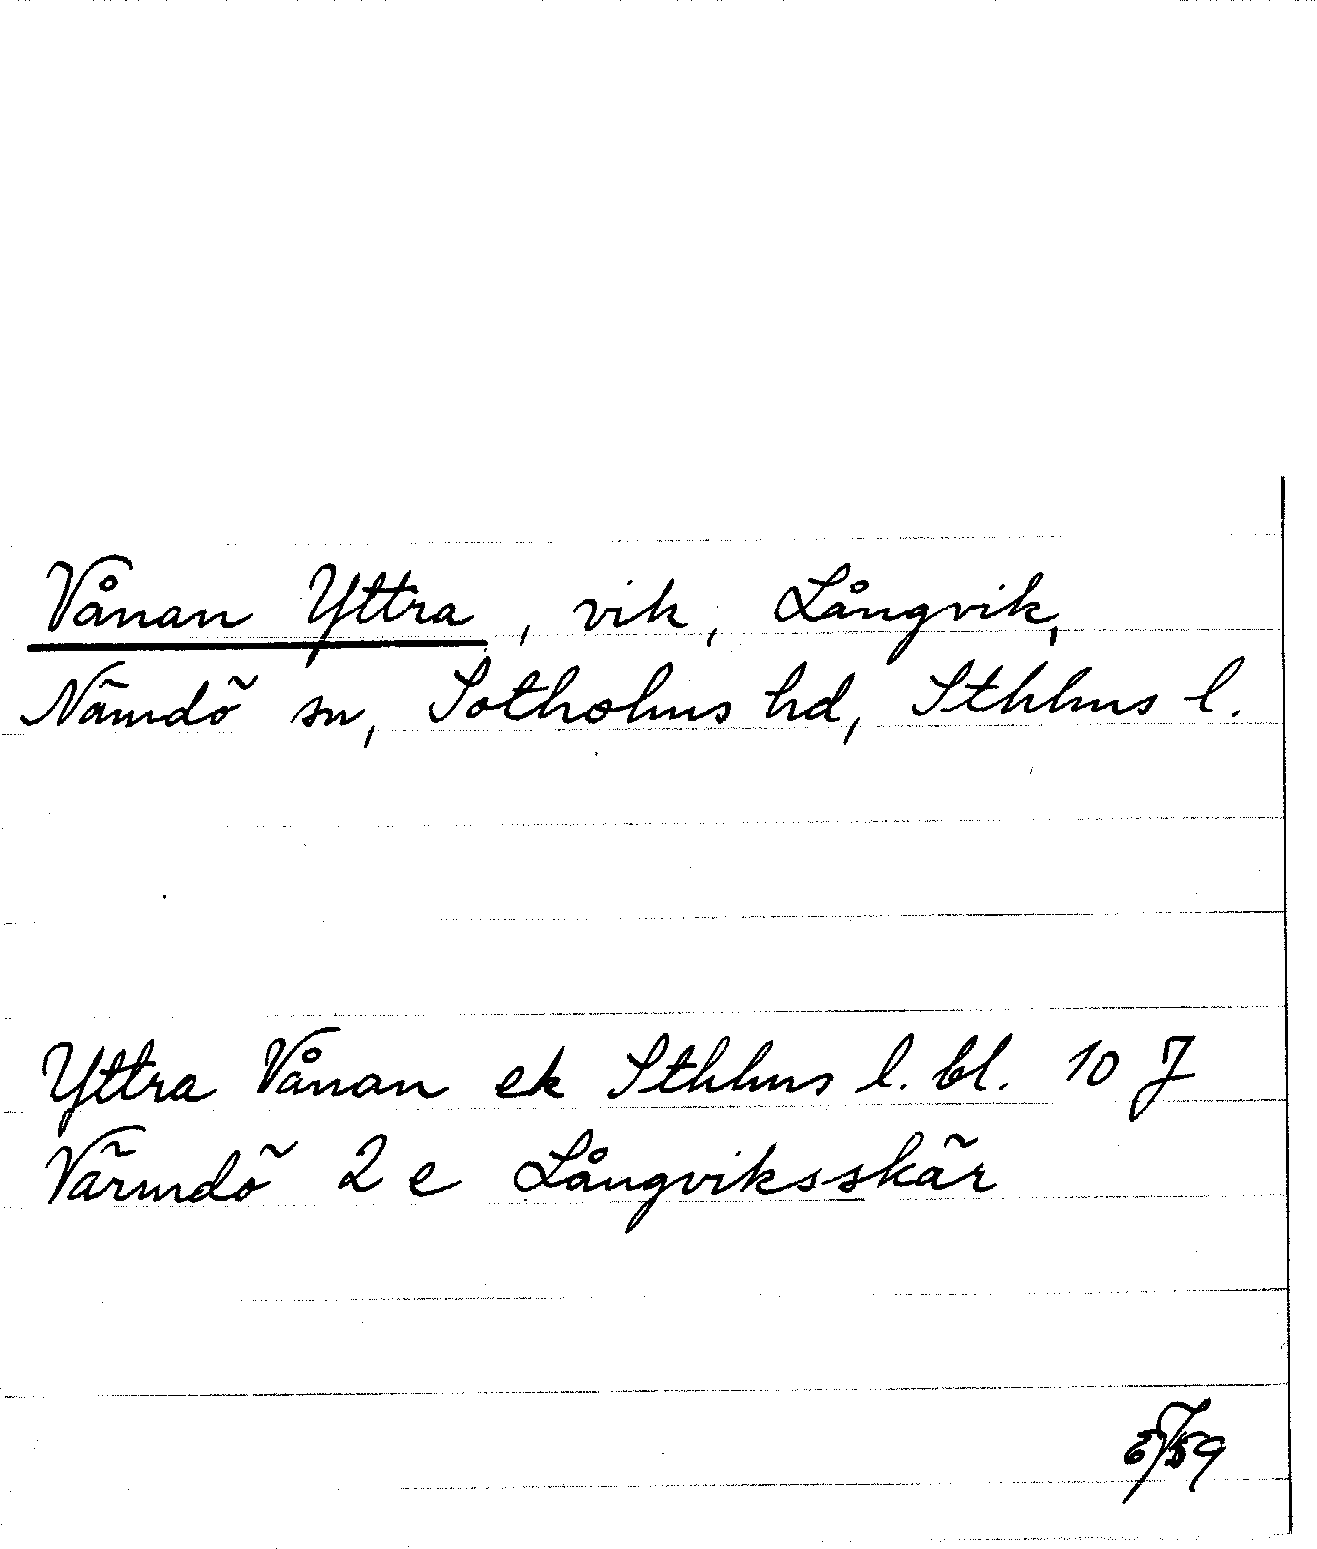 Vånan Yttra, vik, Långvik,
Nämdö sn, Sotholms hd, Sthlms l.
Yttra Vånan ek Sthlms l. bl. 10 J
Värmdö 2 e Långviksskär